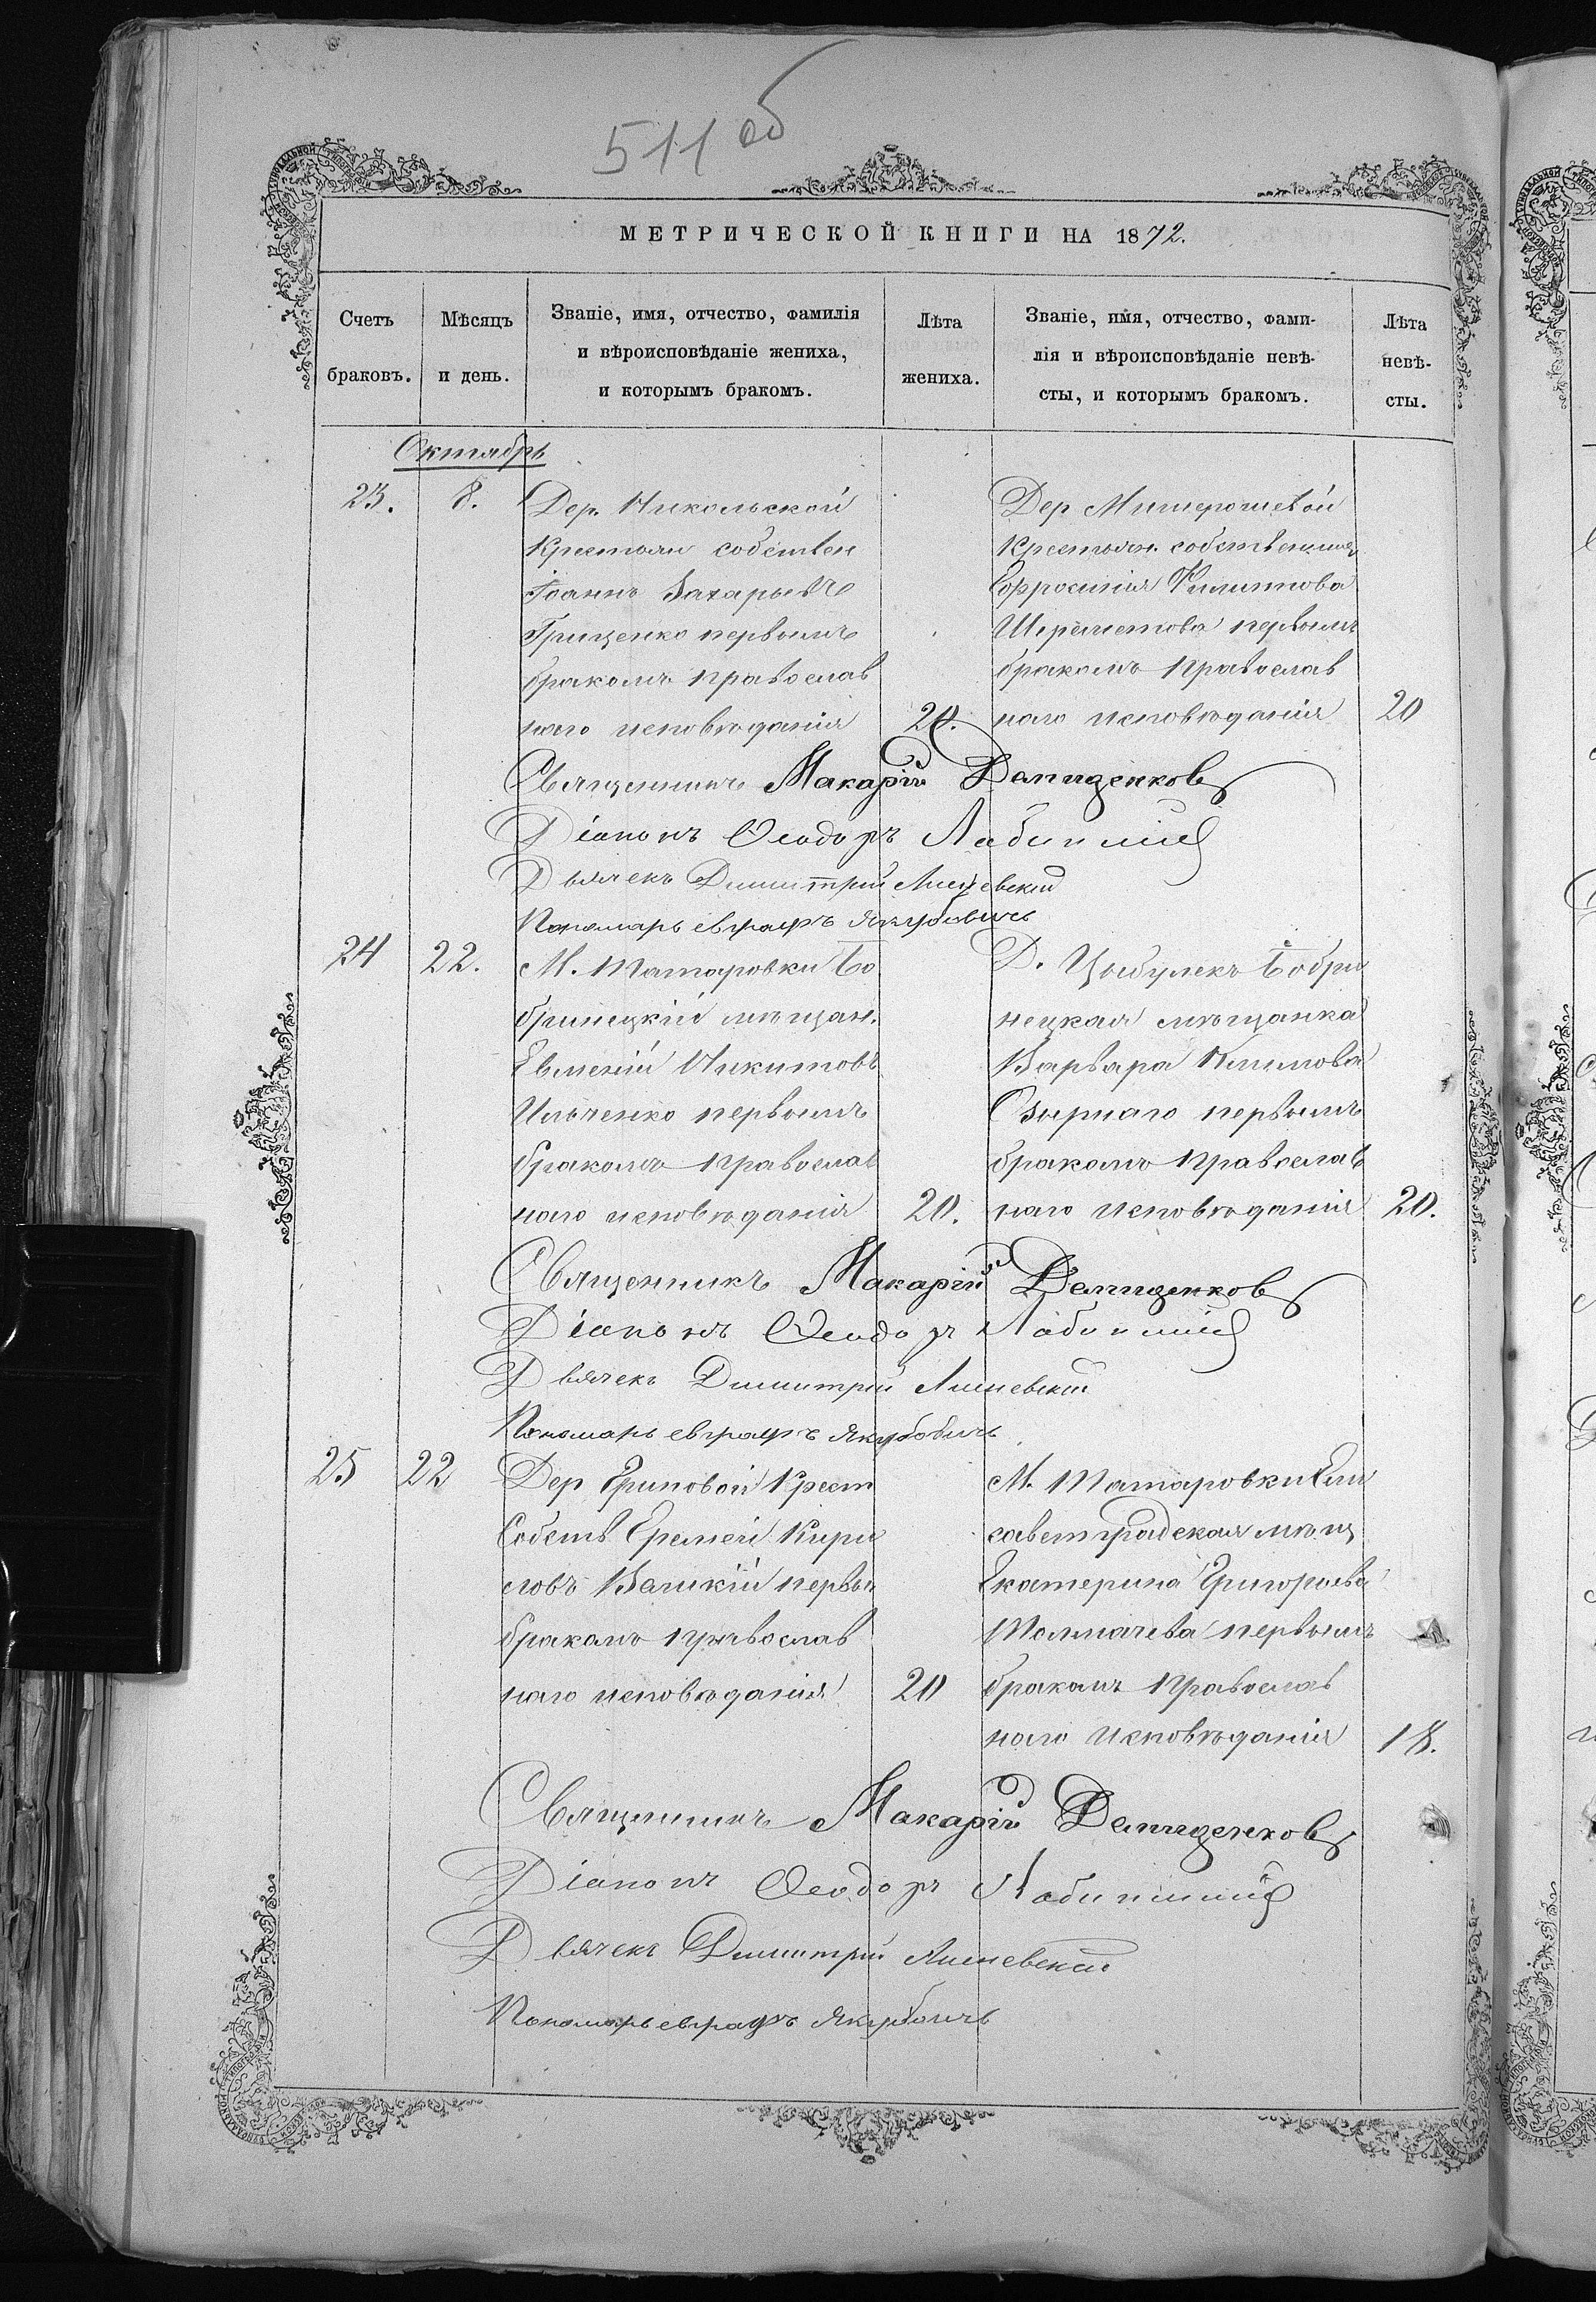 511 об
МЕТРИЧЕСКОЙ КНИГИ НА 1872.
Счетъ браковъ.
Мѣсяцъ и день.
Званіе, имя, отчество, фамилія
и вѣроисповѣданіе жениха,
и которымъ бракомъ.
Лѣта жениха.
Званіе, имя, отчество, фами-
лія и вѣроисповѣданіе невѣ-
сты, и которымъ бракомъ.
Лѣта невѣ-
сты.
Октябрь
23. 8.
Дер. Никольской
Крестьян собствен
Іоаннъ Захарьевъ
Грищенко первымъ
бракомъ православ
наго исповѣданія 20.
Дер
Крестьян. собственница
Ефросинія Филипова
Шереметова первымъ
бракомъ православ
наго исповѣданія 20
Священникъ Макарій
Діаконъ Ѳеодоръ
Дьячекъ Димитрій
Пономарь Евграфъ Якубовичъ
24 22.
М. Татаровки Бо
бринецкій мѣщан.
Евменій Никитовъ
Ильченко первымъ
бракомъ православ
наго исповѣданія 20.
Д. Цыбулекъ Бобри
нецкая мѣщанка
Варвара Климова
первымъ
бракомъ православ
наго исповѣданія 20.
Священникъ Макарій
Діаконъ Ѳеодоръ
Дьячекъ Димитрій
Пономарь Евграфъ Якубовичъ
25 22
Дер Крест
Собств Еремей Кири
ловъ первы
бракомъ православ
наго исповѣданія 20
М. Татаровки Ели
саветградская мѣщ
Екатерина Григорьева
Толмачева первымъ
бракомъ православ
наго исповѣданія 18.
Священникъ Макарій
Діаконъ Ѳеодоръ
Дьячекъ Димитрій
Пономарь Евграфъ Якубовичъ